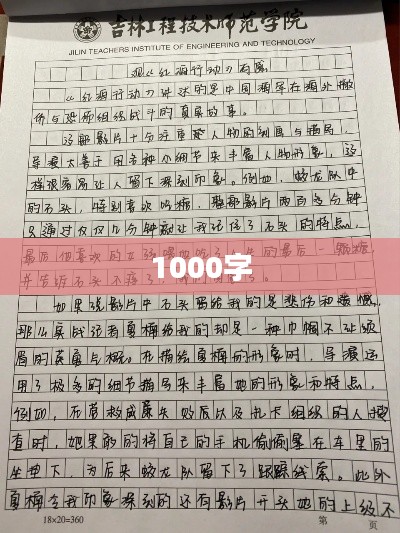 吉林工程技术师范学院
JILIN TEACHERS INSTITUTE OF ENGINEERING AND TECHNOLOGY
观《红海行动》有感
《红海行动》讲述的是中国海军在海外撤
侨与恐怖组织战斗的真实故事。
这部影片十分注重人物的刻画与描写,
导演太善于用各种小细节来丰富人物形象,这
样很容易让人留下深刻印象。例如,蛟龙队中
的石头,特别喜欢吃糖,整部影片两百多分钟
只通过仅仅几分钟就让我记住了石头的特点,
最后他喜欢的女孩喂他吃了人生的最后一颗糖,
并告诉石头不疼了
1000字
如果说影片中石头留给我的是悲伤和遗憾,
那么实战记者夏楠给我的却是一种巾帼不让须
眉的英雄气概。在描绘夏楠的形象时,导演运
用了极多的细节描写来丰富她的形象和特点,
例如,在营救威廉失败后以及扎卡组织的人搜
查时,她果敢的将自己的手机偷偷塞在车里的
坐垫下,为后来蛟龙队留下了跟踪线索。此外
夏楠令我印象深刻的还有影片开头她的上级不
18×20=360
第 页